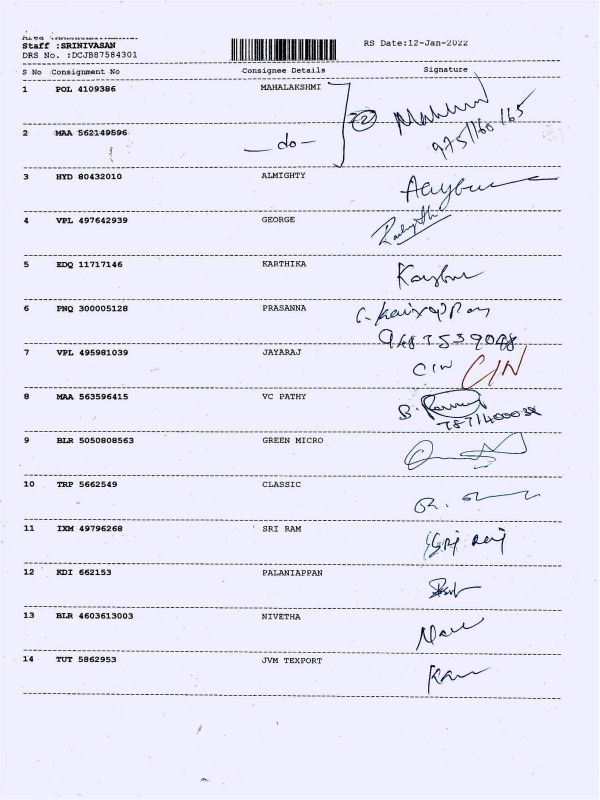 Staff :SRINIVASAN
DRS No. :DCJB87584301
RS Date:12-Jan-2022
S No Consignment No Consignee Details Signature
1 POL 4109386 MAHALAKSHMI
2 MAA 562149596 -do- (2)
9751160165
3 HYD 80432010 ALMIGHTY
4 VPL 497642939 GEORGE
5 EDQ 11717146 KARTHIKA
6 PNQ 300005128 PRASANNA
7 VPL 495981039 JAYARAJ
CIN CIN
8 MAA 563596415 VC PATHY
9 BLR 5050808563 GREEN MICRO
10 TRP 5662549 CLASSIC
11 IXM 49796268 SRI RAM
12 KDI 662153 PALANIAPPAN
13 BLR 4603613003 NIVETHA
14 TUT 5862953 JVM TEXPORT